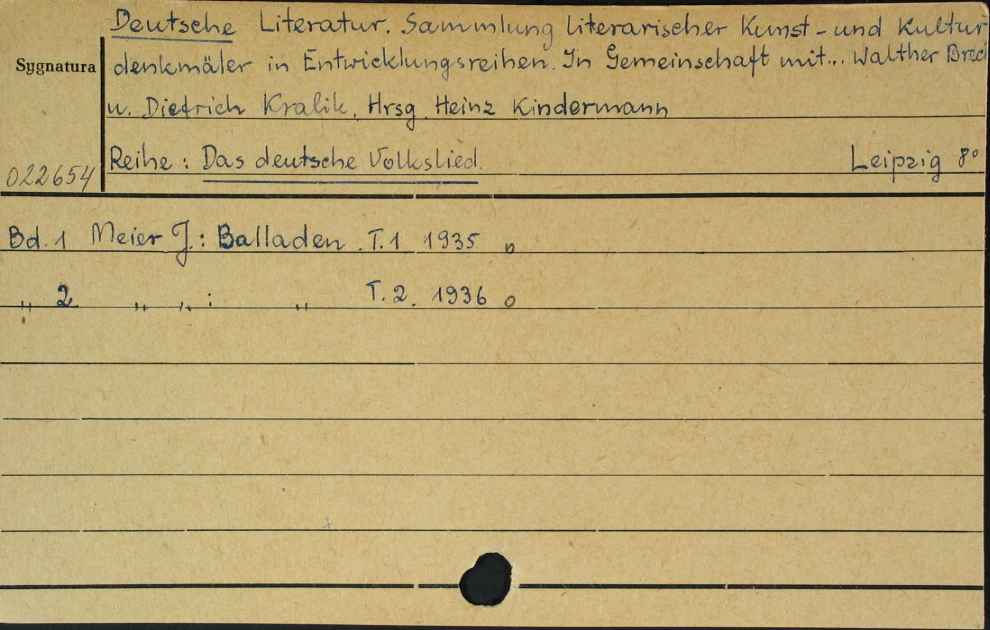 Deutsche Literatur. Sammlung literarischer Kunst- und Kultur
Sygnatura
denkmäler in Entwicklungsreihen. In Gemeinschaft mit... Walther Brec
u. Dietrich Kralik. Hrsg. Heinz Kindermann
022654
Reihe: Das deutsche Volkslied. Leipzig 8°
Bd. 1 Meier J.: Balladen. T. 1 1935
" 2 " " : " T. 2. 1936